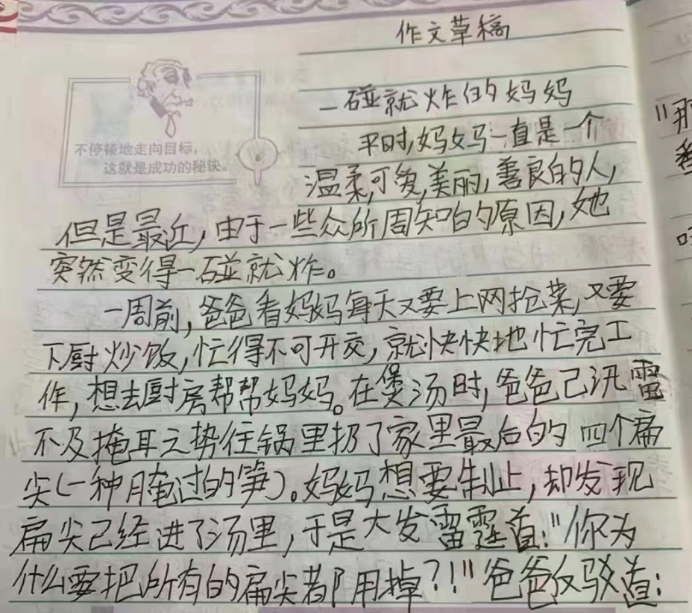 作文草稿
不停顿地走向目标，
这就是成功的秘诀。
一碰就炸的妈妈
平时,妈妈一直是一个
温柔,可爱,美丽,善良的人,
但是最近,由于一些众所周知的原因,她
突然变得一碰就炸。
一周前,爸爸看妈妈每天又要上网抢菜,又要
下厨炒饭,忙得不可开交,就快快地忙完工
作,想去厨房帮帮妈妈。在煲汤时,爸爸已汛雷
不及掩耳之势往锅里扔了家里最后的四个扁
尖(一种腌过的笋)。妈妈想要制止,却发现
扁尖已经进了汤里,于是大发雷霆道:"你为
什么要把所有的扁尖都用掉?!"爸爸反驳道:
"那